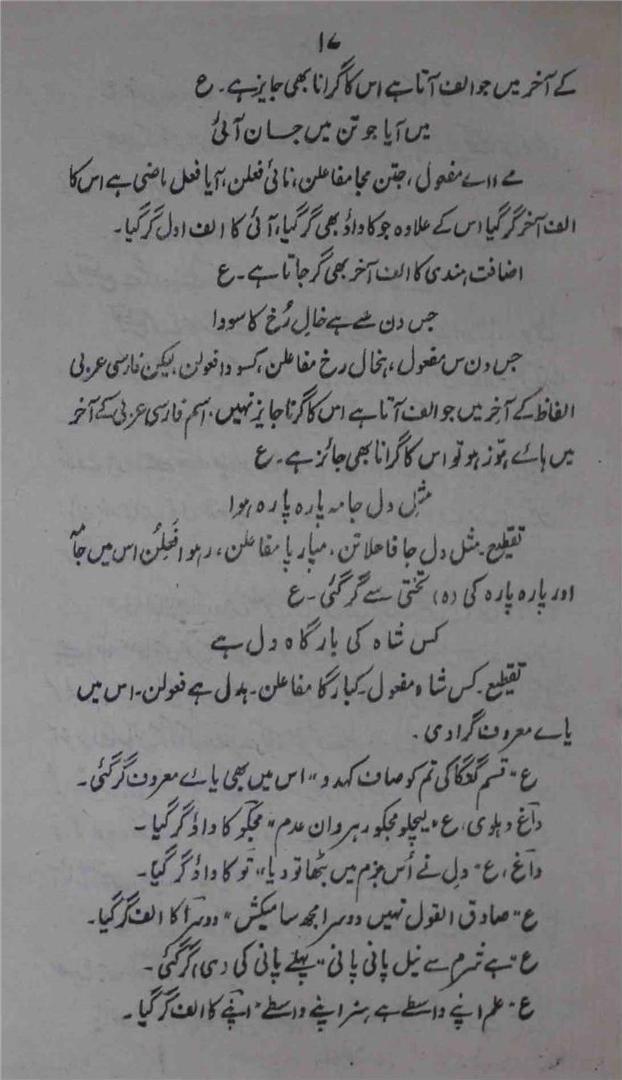 ۱۷
کے آخر میں جو الف آتا ہے اس کا گرانا بھی جایز ہے۔ ع
میں آیا جو تن میں جان آئی
مے ااے مفعول، جتن مجا مفاعلن، نائی فعلن، آیا فعل ماضی ہے اس کا
الف آخر گر گیا اس کے علاوہ جو کا واؤ بھی گر گیا، آئی کا الف اول گر گیا۔
اضافت ہندی کا الف آخر بھی گر جاتا ہے۔ ع
جس دن سے ہے خالِ رُخ کا سودا
جس دن س مفعول، ہخال رخ مفاعلن، کسودا فعولن۔ لیکن فارسی عربی
الفاظ کے آخر میں جو الف آتا ہے اس کا گرنا جایز نہیں۔ اسم فارسی عربی کے آخر
میں ہائے ہوّز ہو تو اس کا گرانا بھی جائز ہے۔ ع
مثلِ دل جامہ پارہ پارہ ہوا
تقطیع۔ مثل دل جا فاعلاتن، مپار پا مفاعلن، رہوا فَعِلُن اس میں جامہ
اور پارہ پارہ کی (ہ) تختی سے گر گئی۔ ع
کس شاہ کی بارگاہ دل ہے
تقطیع۔ کس شاہ مفعول۔ کبارگا مفاعلن۔ ہدل ہے فعولن۔ اس میں
یائے معروف گرا دی۔
ع "قسم گنگا کی تم کو صاف کہدو" اس میں بھی یائے معروف گر گئی۔
داغ دہلوی، ع "لیچلو مجکو رہروان عدم" مجکو کا واؤ گر گیا۔
داغ، ع "دل نے اُس بزم میں بٹھا تو دیا" تو کا واؤ گر گیا۔
ع "صادق القول نہیں دوسرا مجھ سا میکش" دوسرا کا الف گر گیا۔
ع "ہے شرم سے نیل پانی پانی" پہلے پانی کی (ی) گر گئی۔
ع "علم اپنے واسطے ہے ہنر اپنے واسطے" اپنے کا الف گر گیا۔